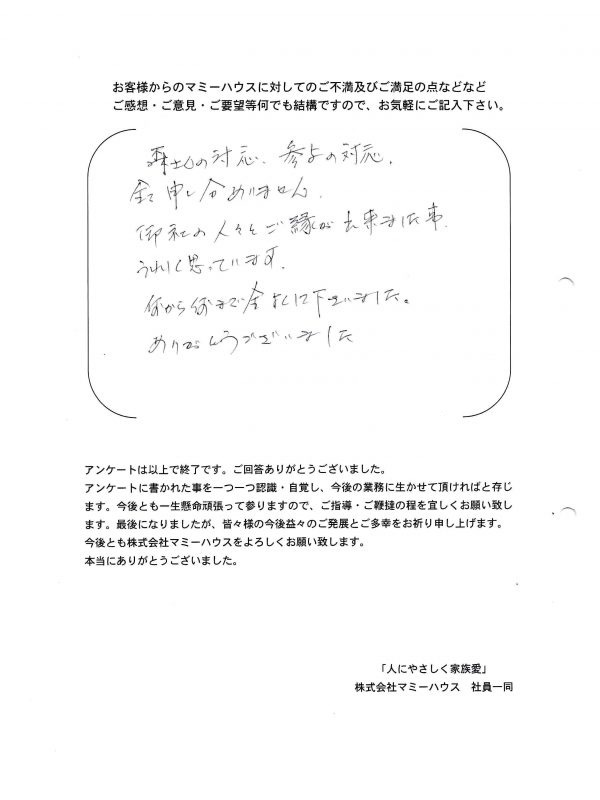 お客様からのマミーハウスに対してのご不満及びご満足の点などなど
ご感想・ご意見・ご要望等何でも結構ですので、お気軽にご記入下さい。
の対応、の対応、
全て申し分ありません。
御社の人々とご縁が出来ました事
うれしく思っています。
何から何まで全よくして下さいました。
ありがとうございました
アンケートは以上で終了です。ご回答ありがとうございました。
アンケートに書かれた事を一つ一つ認識・自覚し、今後の業務に生かせて頂ければと存じ
ます。今後とも一生懸命頑張って参りますので、ご指導・ご鞭撻の程を宜しくお願い致し
ます。最後になりましたが、皆々様の今後益々のご発展とご多幸をお祈り申し上げます。
今後とも株式会社マミーハウスをよろしくお願い致します。
本当にありがとうございました。
「人にやさしく家族愛」
株式会社マミーハウス 社員一同